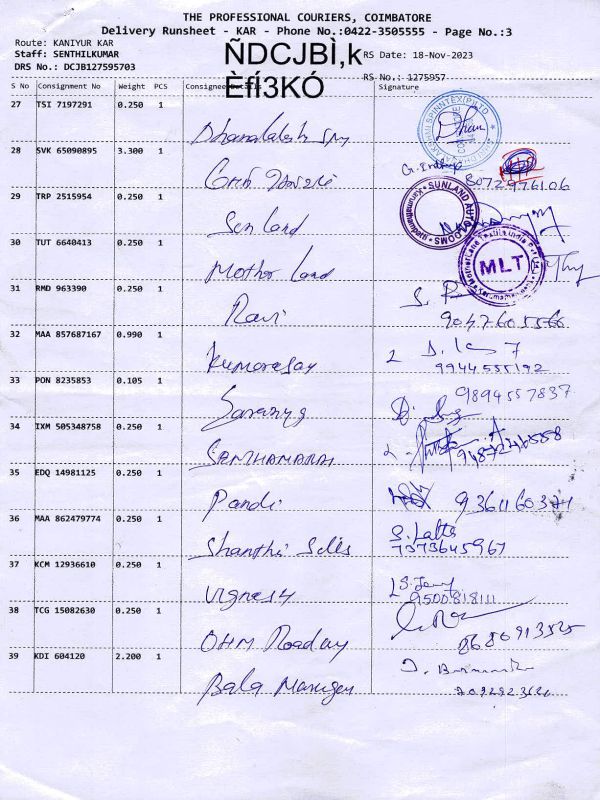 THE PROFESSIONAL COURIERS, COIMBATORE
Delivery Runsheet - KAR - Phone No.:0422-3505555 - Page No.:3
Route: KANIYUR KAR
Staff: SENTHILKUMAR
DRS No.: DCJB127595703
ÑDCJBÌ,k
ÈfÍ3KÓ
RS Date: 18-Nov-2023
RS No.: 1275957
S No Consignment No Weight PCS Consignee Details Signature
27 TSI 7197291 0.250 1
28 SVK 65090895 3.300 1
8072976106
29 TRP 2515954 0.250 1
Sun Land
SUNLAND AUTOLOOMS
30 TUT 6640413 0.250 1
Mother Land
MLT
31 RMD 963390 0.250 1
Ravi
9047605566
32 MAA 857687167 0.990 1
Kumaresan
9944555192
33 PON 8235853 0.105 1
Saranya
9894557837
34 IXM 505348758 0.250 1
35 EDQ 14981125 0.250 1
Pandi
36 MAA 862479774 0.250 1
Shanthi Sales
S. Latha
7373645967
37 KCM 12936610 0.250 1
Vignesh
9500818111
38 TCG 15082630 0.250 1
OHM Roadway
8680913525
39 KDI 604120 2.200 1
Bala Murugan